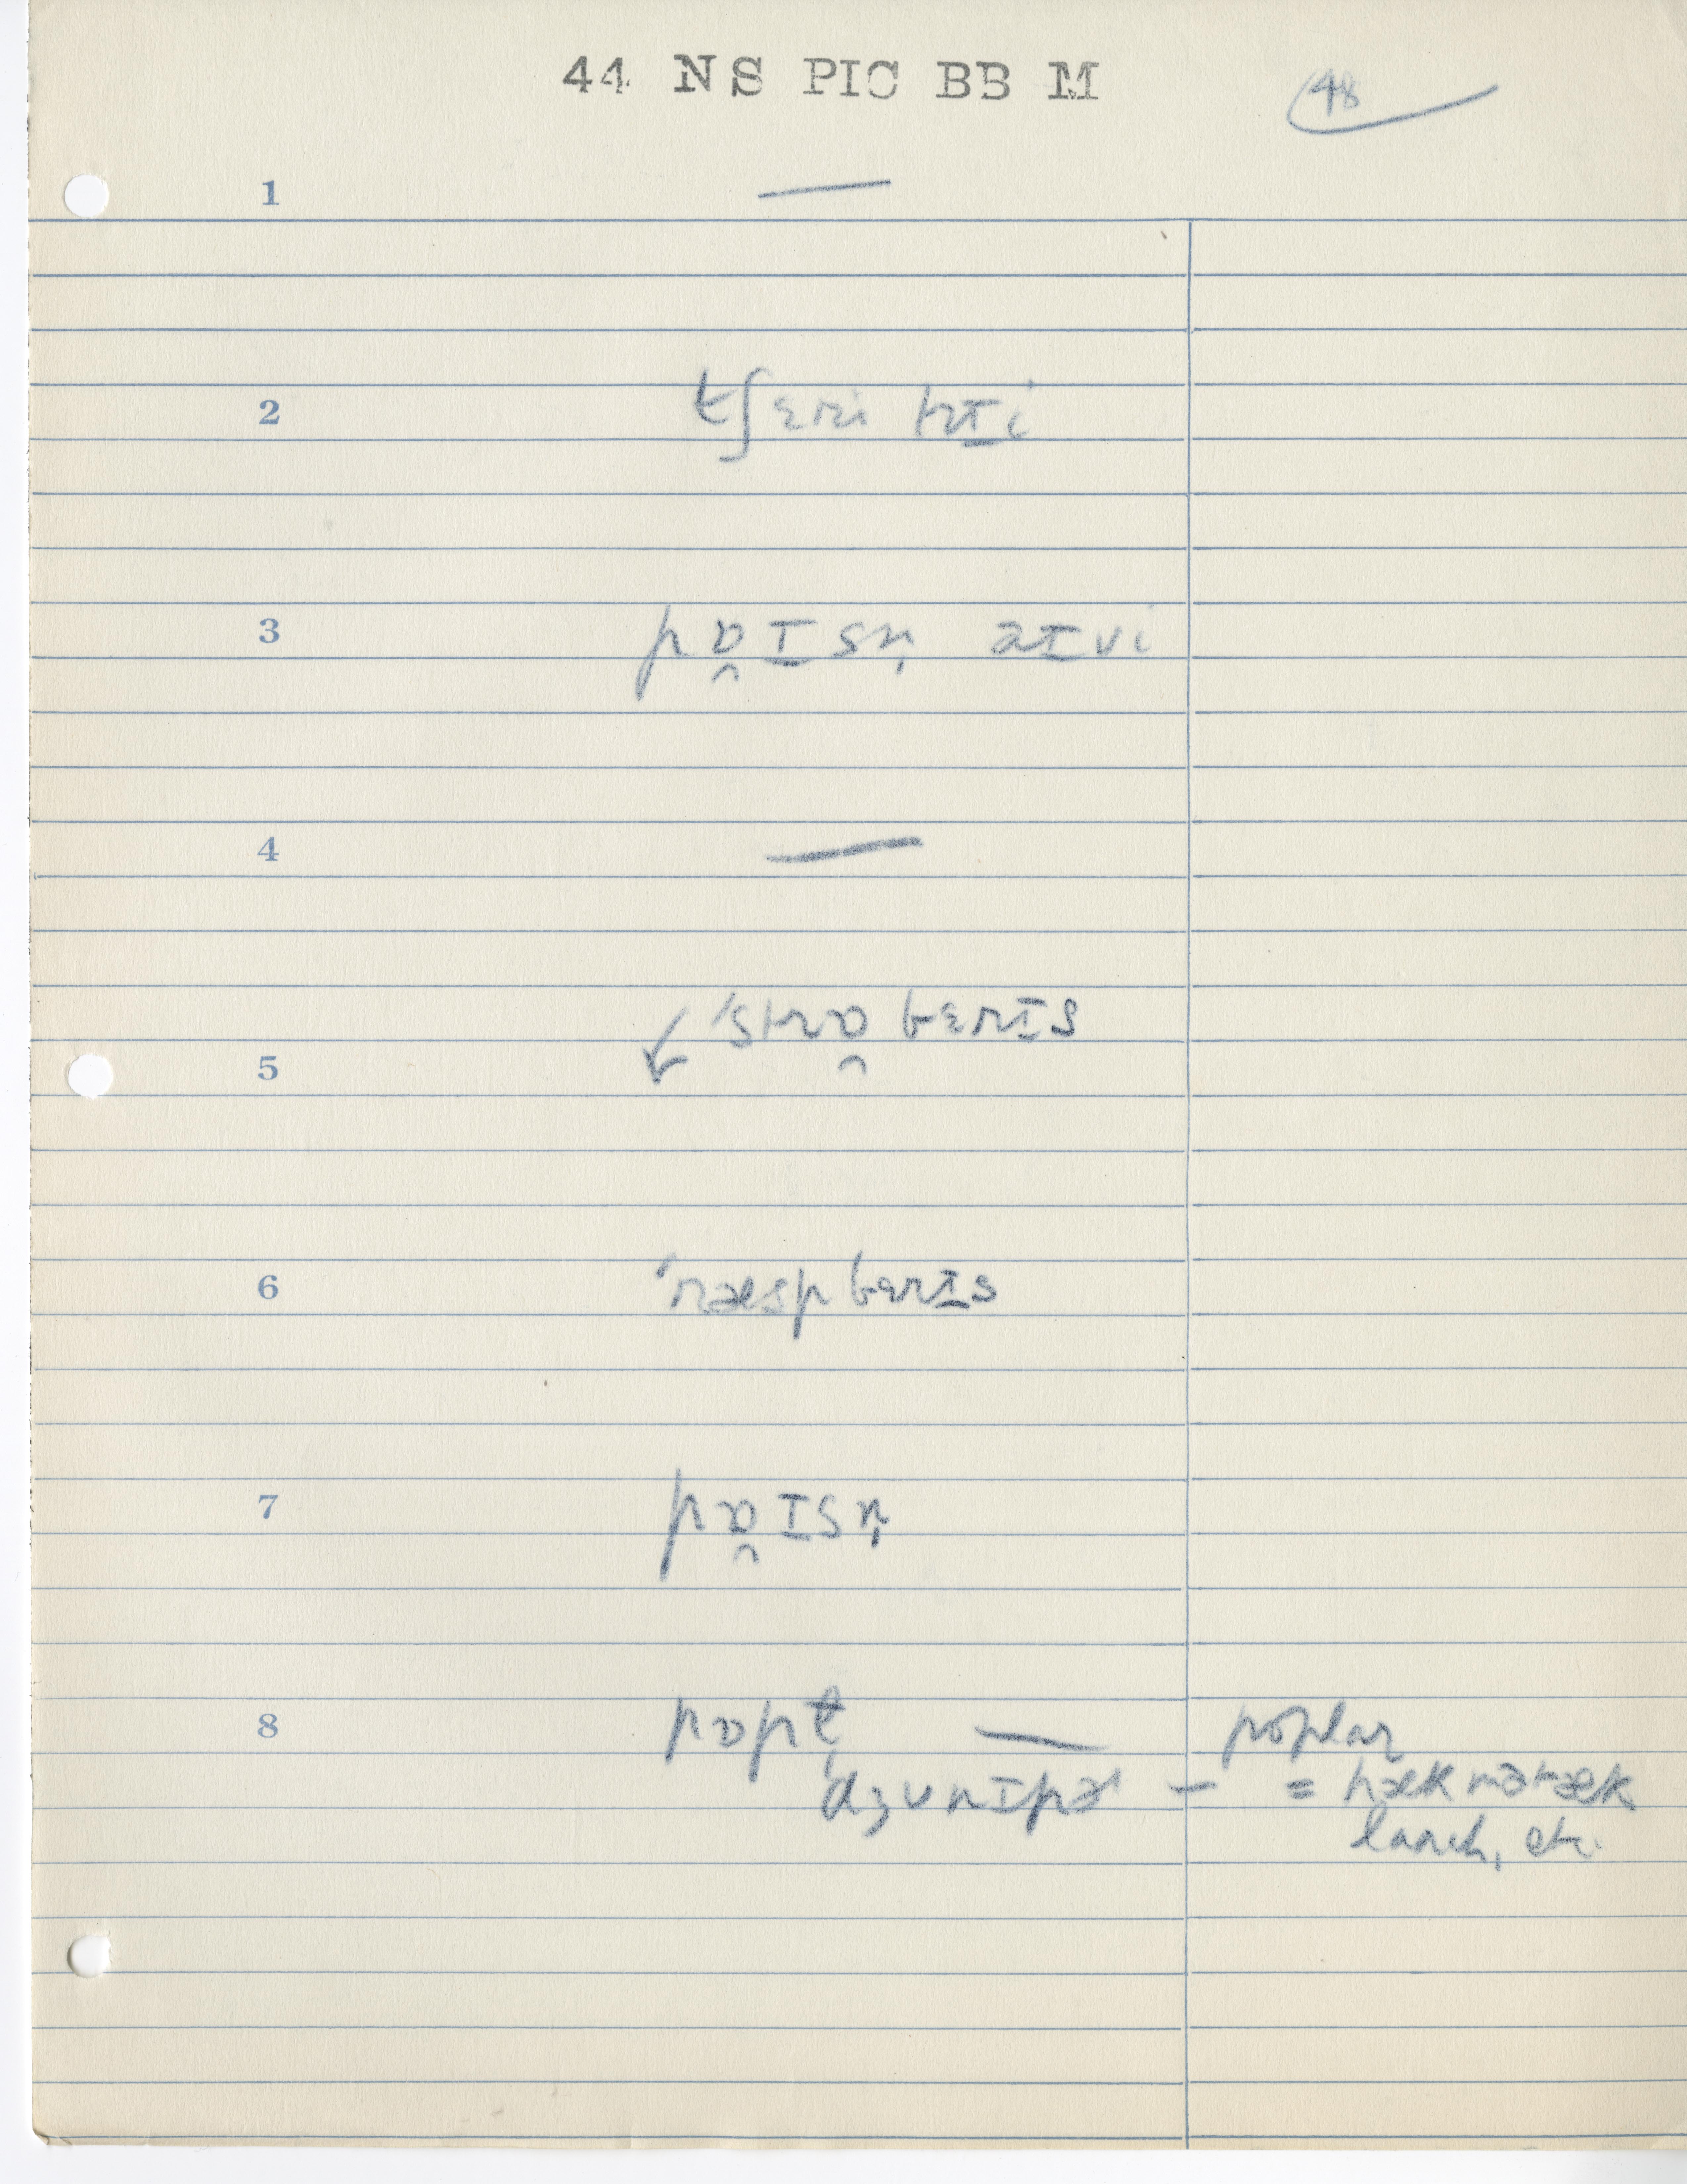 44 NS PIC BB M
48
1 —
2 tʃɛri trɪ̱i
3 pɒ̯ɪ̱sn̩ aɪvi
4 —
5 ✓ ˈstrɒ̯bɛrɪs
6 ˈræspbɛrɪ̱s
7 pɒ̯ɪsn̩
8 pɒpɫ̩ — poplar
dʒunɪpɚ — = hækmətæk
larch, etc.